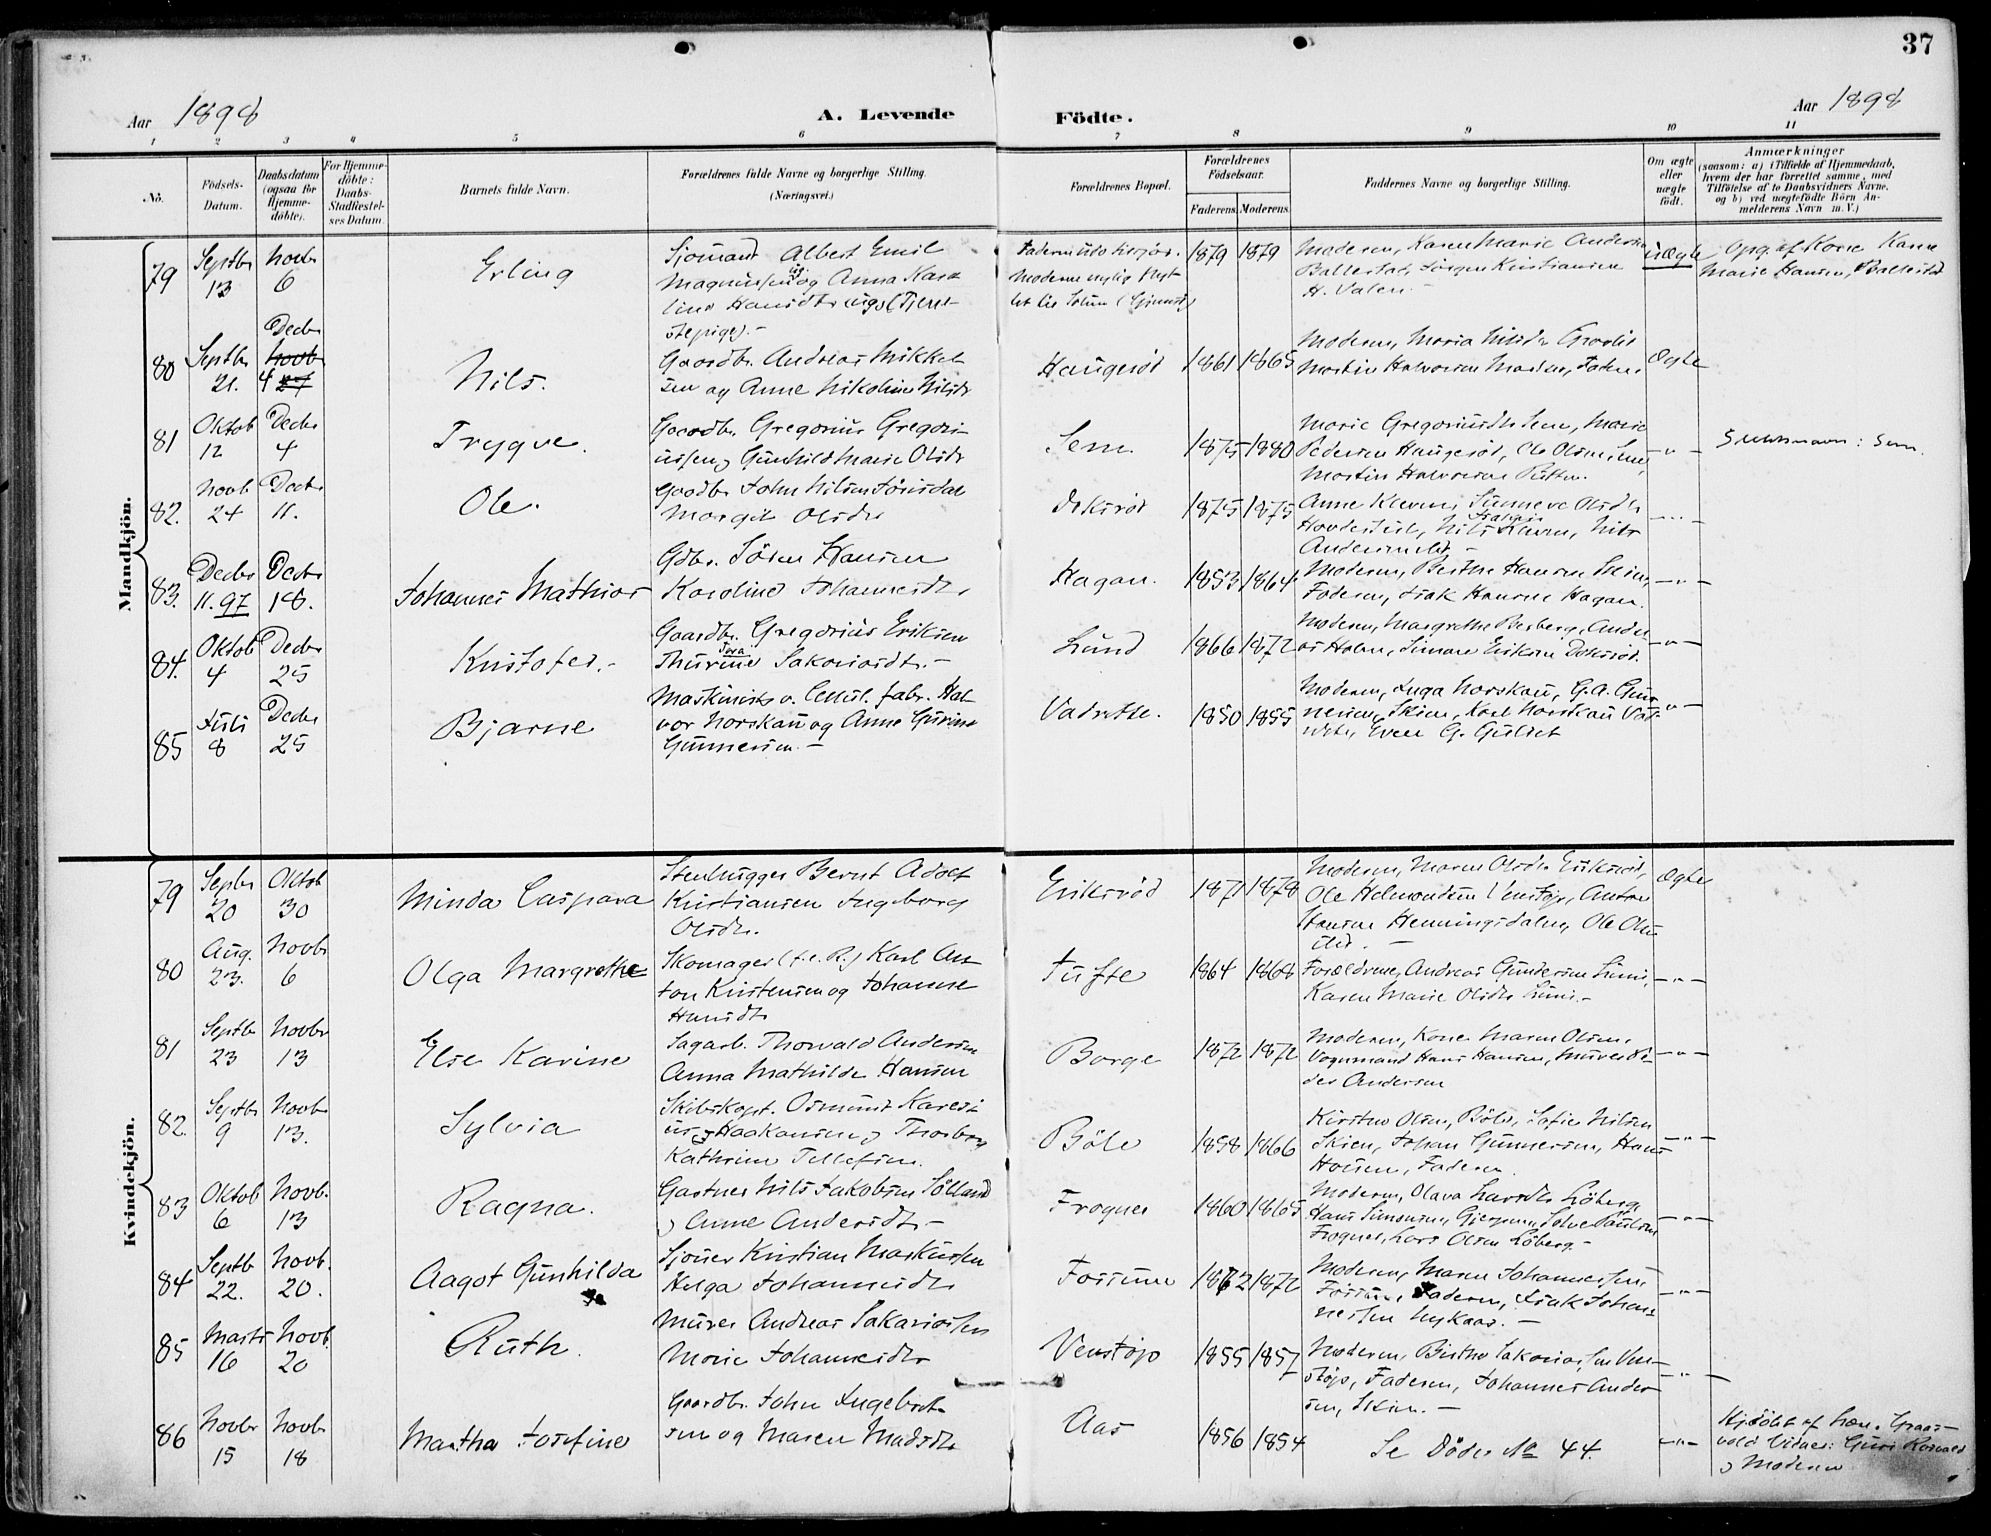 37
Aar 1898
A. Levende
Födte.
Aar 1898
1 2 3 4 5 6 7 8 9 10 11
No.
Födsels-
Datum.
Daabsdatum
(ogsaa for
Hjemme-
döbte).
For Hjemme-
döbte:
Daabs-
Stadfæstel-
ses Datum.
Barnets fulde Navn.
Forældrenes fulde Navne og borgerlige Stilling.
(Næringsvei.)
Forældrenes Bopæl.
Forældrenes
Födselsaar.
Faderens. Moderens.
Faddernes Navne og borgerlige Stilling.
Om ægte
eller
uægte
födt.
Anmærkninger
(saasom: a) i Tilfælde af Hjemmedaab,
hvem der har forrettet samme, med
Tilföielse af to Daabsvidners Navne,
og b) ved uægtefödte Börn An-
melderens Navn m. V.)
Mandkjön.
79
Septbr
13
Novbr
6
Erling
Sjömand Albert Emil
Magnussen og Anna Karo
line Hansdtr
1879 1879
Moderen, Karen Marie Andersen
Ballestad, Jörgen Kristiansen
H. Valen
uÆgte
Opg. af Kone Karen
Marie Hansen, Ballestad
80
Septbr
21.
Decbr
Novbr
4 27
Nils.
Gaardbr. Andreas Mikkel
sen og Anne Nikoline Nilsdr
Haugeröd
1861 1865
Moderen, Maria Nilsdr
Martin Halvorsen Fader
Ægte
81
Oktob
12
Decbr
4
Trygve.
Gaardbr. Gregorius Gregori
ussen, Gunhild Marie Olsdr
Sem
1875 1880
Marie Gregoriusdtr Sem, Marie
Pedersen Haugeröd, Ole Olsen Sem,
Martin Halvorsen
- " -
Slektsnavn: Sem.
82.
Novb
24
Decbr
11.
Ole.
Gaardbr John Nilsen
Margit Olsdtr
Dokröd
1875 1875
Anne Kleven, Sunneve Olsdtr
Nils Kleven, Nils
- " -
83.
Decbr
11. 97
Decbr
18.
Johannes Mathias
Gdbr. Sören Hansen
Karoline Johannesdtr
Hagan.
1853 1864
Moderen, Berthe Hansen Skien,
Faderen, Isak Hansen Hagan.
- " -
84.
Oktob
4
Decbr
25
Kristofer.-
Gaardbr. Gregorius Eriksen
Tora
Thurine Sakariasdtr.-
Lund
1866 1872
Moderen, Margrethe Andre
as Holm, Simon Eriksen Dokröd.
- " -
85
Juli
8
Decbr
25
Bjarne
Maskinist v. Cellul. fabr. Hal
vor Norskau og Anne Gurine
Gunnersen.-
Vadrette.
1850 1855
Moderen, Inga Norskau, G. A. Gun
nersen, Skien, Karl Norskau Vad
rette, Even G. Gulset
- " -
Kvindekjön.
79
Septbr
20
Oktob
30
Minda Caspara
Stenhugger Bernt Adolf
Kristiansen Ingeborg
Olsdtr.
Eriksröd
1871 1878
Moderen, Maren Olsdtr Eriksröd,
Ole Helmondsen Venstöp, Anton
Hansen Henningsdalen, Ole Olsen
Ægte
80
Aug.
23.
Novbr
6
Olga Margrethe
Skomager (f. e. R.) Karl An
ton Kristensen og Johanne
Hansdtr
Tufte
1864 1868
Forældrene, Andreas Gundersen
Karen Marie Olsdtr
- " -
81
Septbr
23
Novbr
13
Else Karine
Sagarb. Thorvald Andersen
Anna Mathilde Hansen
Borge
1872 1872
Moderen, Kone Maren Olsen,
Vognmand Hans Hansen, Murer
Andersen
- " -
82.
Septbr
9
Novbr
13.
Sylvia
Skibskapt. Osmund
Haakonsen, Thorborg
Kathrine Tellefsen.
Böle
1858 1866
Kirstine Olsen, Böle, Sofie Nilsen
Skien, Johan Gunnersen, Hans
Hansen, Faderen.
- " -
83
Oktob
6
Novb.
13
Ragna.
Gartner Nils Jakobsen Sölland
Anne Andersdtr-
Frogner
1860 1865
Moderen, Olava Larsdtr Löberg,
Hans Simonsen, Gjerpen, Solve Paulsen
Frogner, Lars Olsen Löberg.-
- " -
84
Septb
22.
Novb.
20.
Aagot Gunhilda
Sjöuer Kristian Markussen
Helga Johannesdtr
Fossum
1862 1872
Moderen, Maren Johannessen
Fossum, Faderen, Isak Johan
nessen Nykaas.-
- " -
85
Marts
16
Novb
20
Ruth.
Murer Andreas Sakariassen
Marie Johannesdtr
Venstöp
1855 1857
Moderen, Berthe Sakariassen Ven-
stöp, Faderen, Johannes Ander
sen, Skien.-
- " -
86
Novbr
15
Novbr
18
Martha Josefine
Gaardbr. John Ingebret
sen og Maren Madsdtr
Aas
1856 1854
Se Döde No 44.
- " -
Hjdöbt af Graas-
vold Vidner:
Moderen